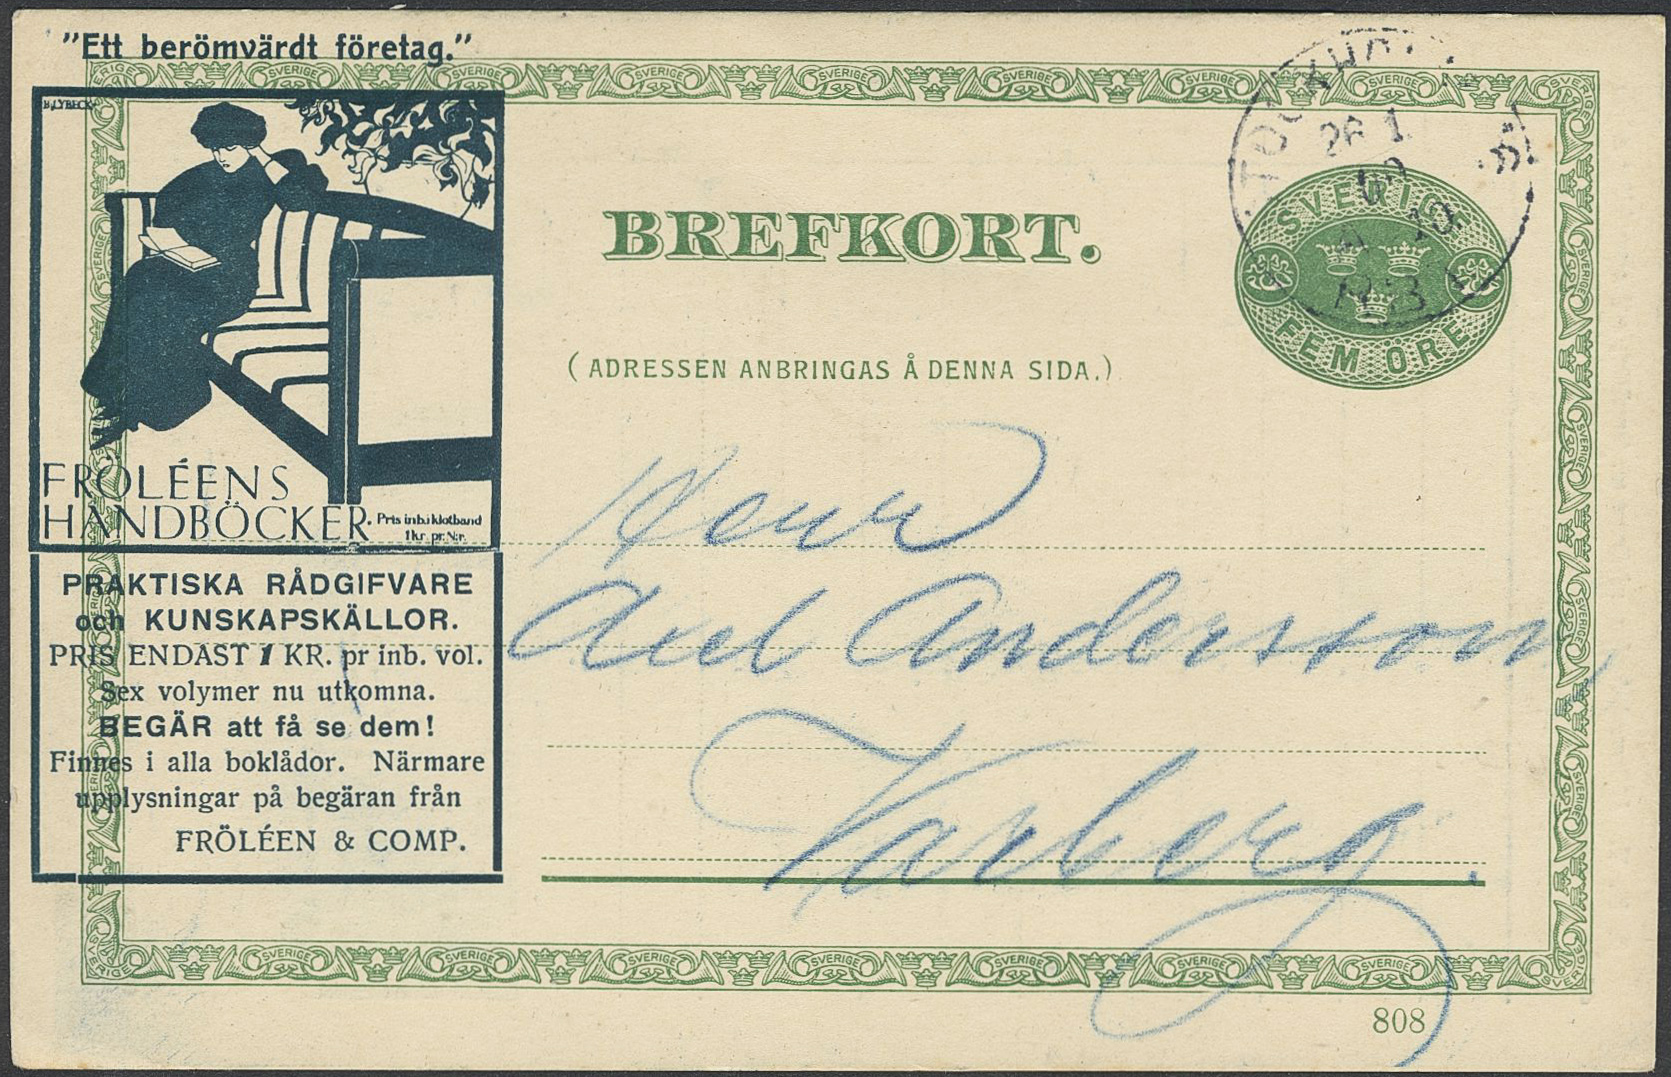 "Ett berömvärdt företag."
B. LYBECK
FRÖLÉENS
HANDBÖCKER. Pris inb. i klotband
1 kr. pr. N:r.
PRAKTISKA RÅDGIFVARE
och KUNSKAPSKÄLLOR.
PRIS ENDAST 1 KR. pr inb. vol.
Sex volymer nu utkomna.
BEGÄR att få se dem!
Finnes i alla boklådor. Närmare
upplysningar på begäran från
FRÖLÉEN & COMP.
BREFKORT.
(ADRESSEN ANBRINGAS Å DENNA SIDA.)
SVERIGE
FEM ÖRE
26 1
Herr
Axel Andersson,
Varberg.
808